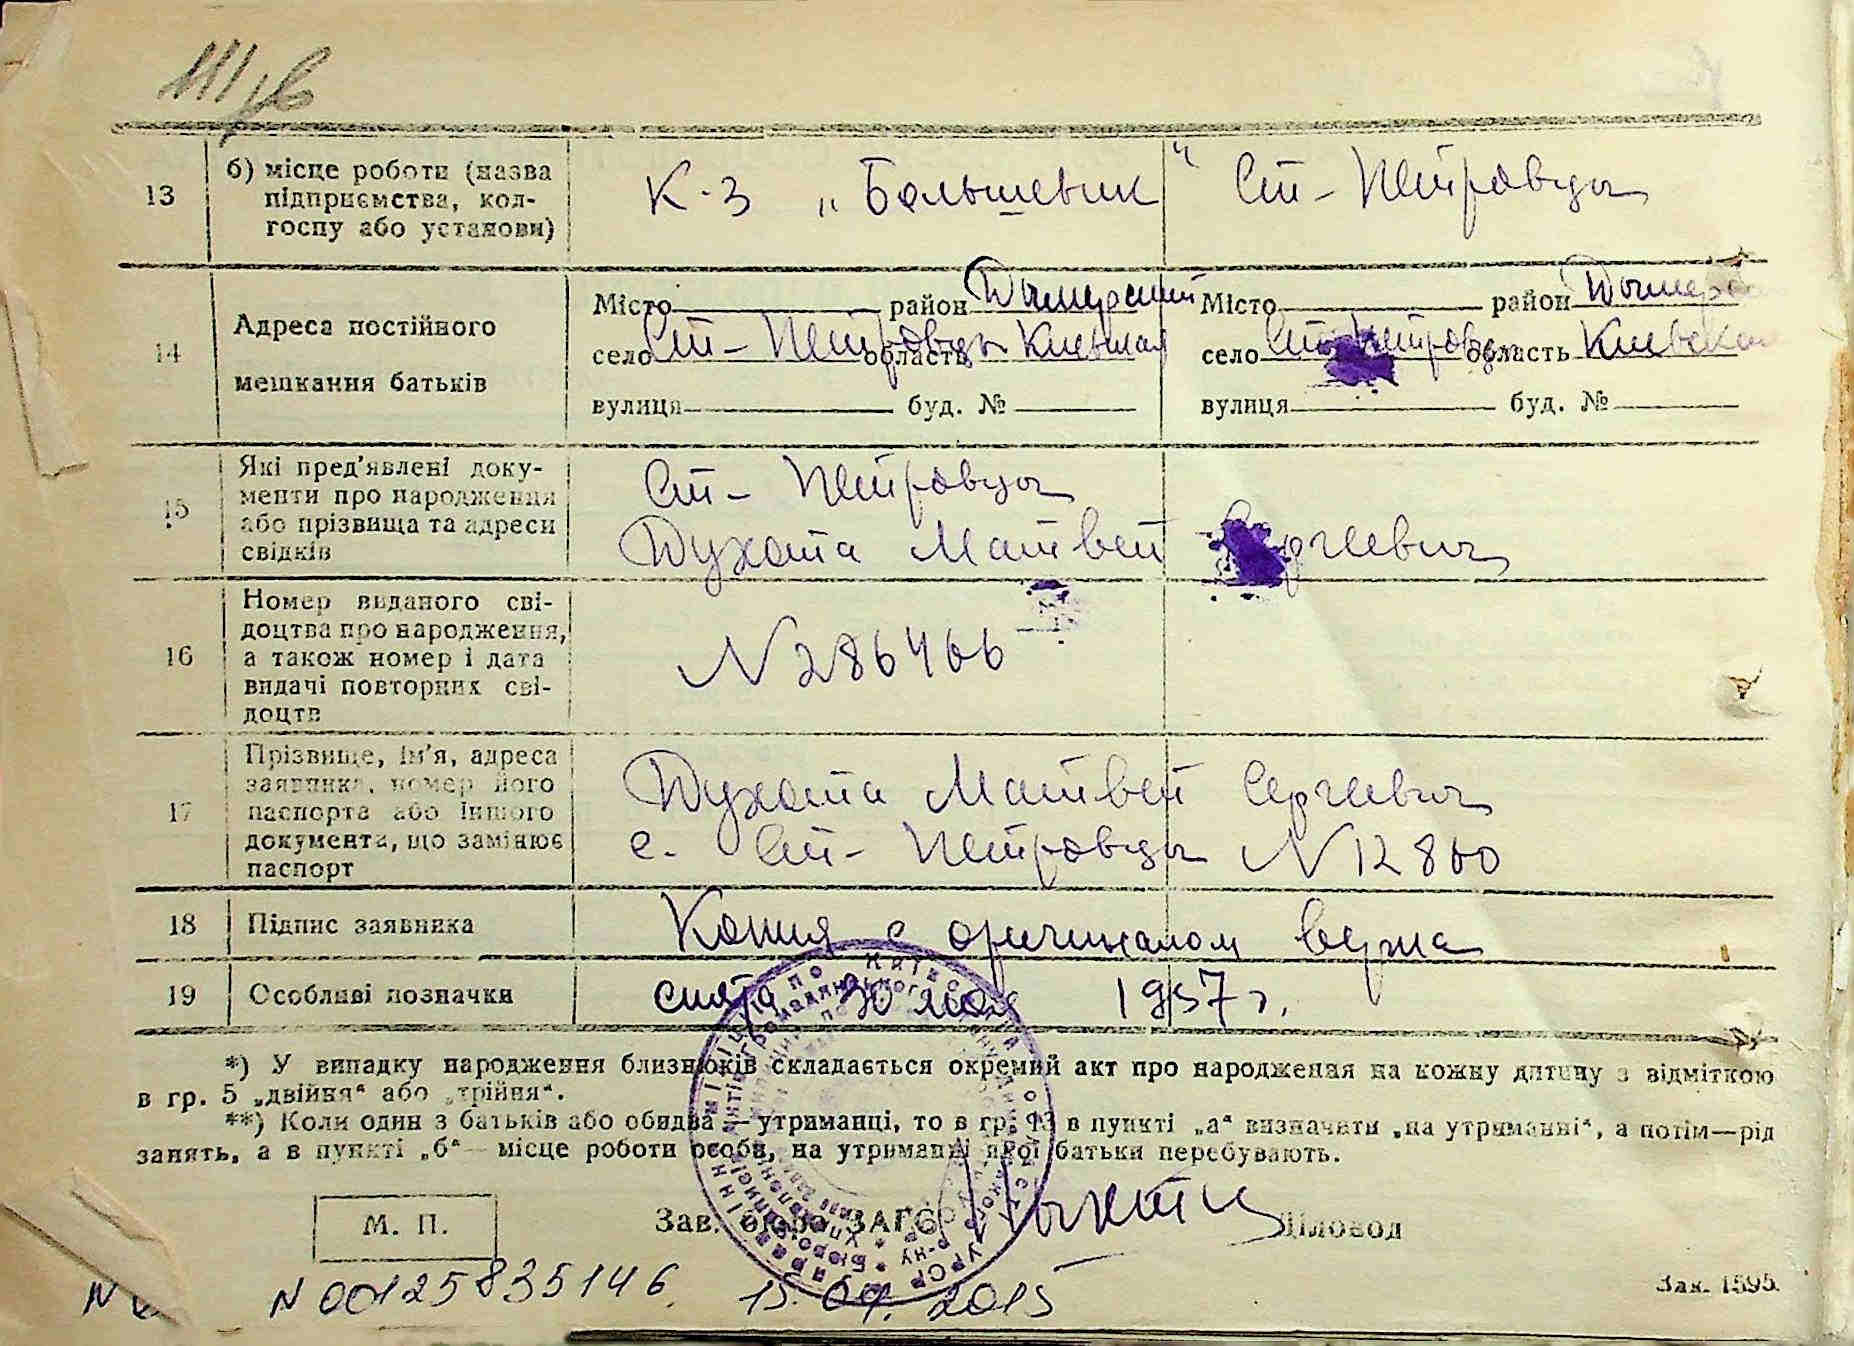 13
б) місце роботи (назва
підприємства, кол-
госпу або установи)
К-з „Большевик“ Ст-Петровцы
14
Адреса постійного
мешкання батьків
Місто район Дымерский
село Ст-Петровцы область Киевская
вулиця буд. №
Місто район Дымерс
село Ст-Петровцы область Киевская
вулиця буд. №
15
Які пред'явлені доку-
менти про народження
або прізвища та адреси
свідків
Ст-Петровцы
Духота Матвей Сергеевич
16
Номер виданого сві-
доцтва про народження,
а також номер і дата
видачі повторних сві-
доцтв
N 286466
17
Прізвище, ім'я, адреса
заявника, номер його
паспорта або іншого
документа, що замінює
паспорт
Духота Матвей Сергеевич
с. Ст-Петровцы N 12860
18
Підпис заявника
Копия с оригиналом верна
19
Особливі позначки
снята 30 мая 1957 г.
*) У випадку народження близнюків складається окремий акт про народження на кожну дитину з відміткою
в гр. 5 „двійня“ або „трійня“.
**) Коли один з батьків або обидва — утриманці, то в гр. 13 в пункті „а“ визначати „на утриманні“, а потім—рід
занять, а в пункті „б“— місце роботи особи, на утриманні якої батьки перебувають.
М. П.
Зав. бюро ЗАГС
Діловод
N 00125835146. 15.09.2015
Зак. 1595.